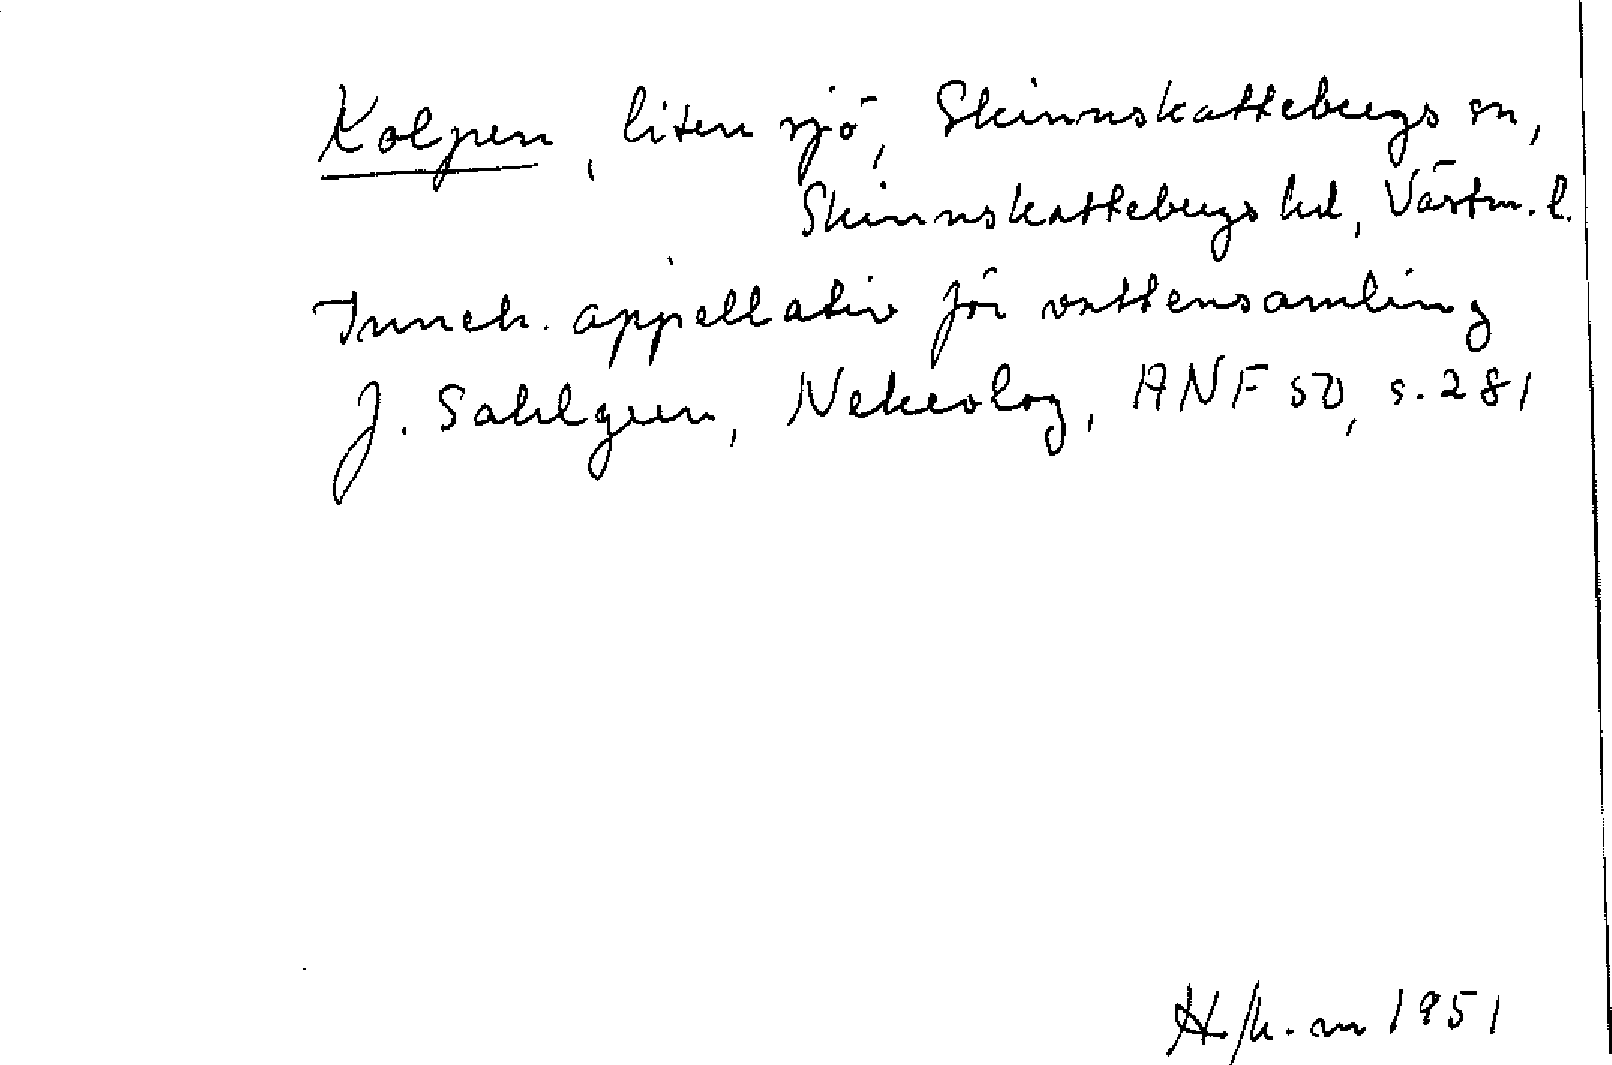 Kolpen, liten sjö, Skinnskattebergs sn,
Skinnskattebergs hd, Västm. l.
Inneh. appellativ för vattensamling
J. Sahlgren, Nekrolog, ANF 50, s. 281
1951